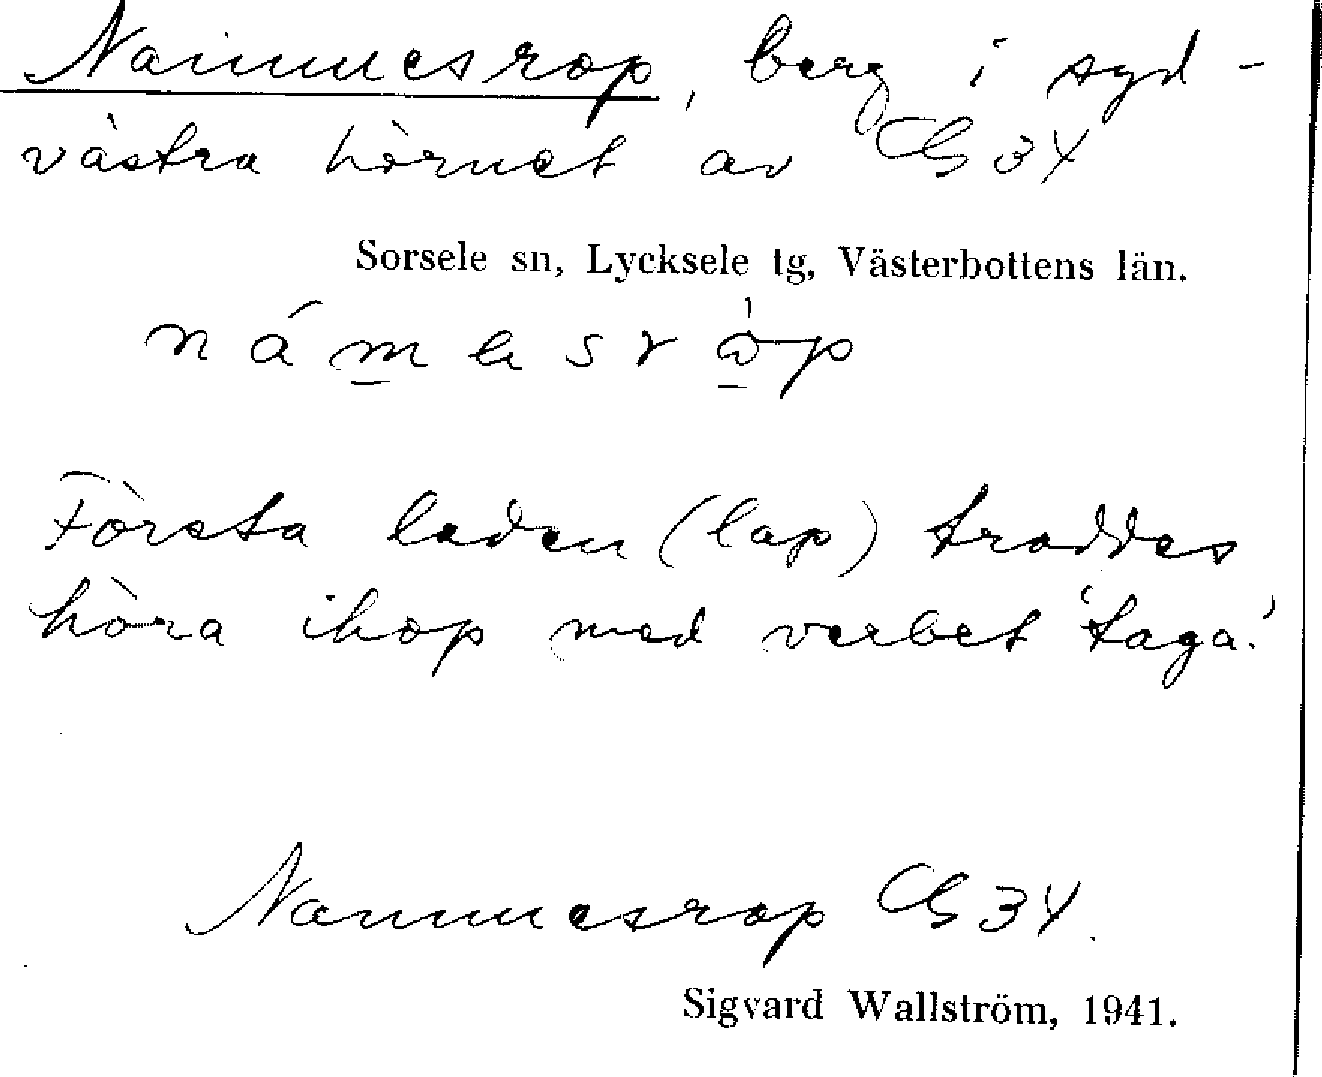 Nammesrop, berg i syd-
västra hörnet av GS 34
Sorsele sn, Lycksele tg, Västerbottens län.
Första leden (lap) troddes
höra ihop med verbet 'taga.'
Nammesrop GS 34.
Sigvard Wallström, 1941.